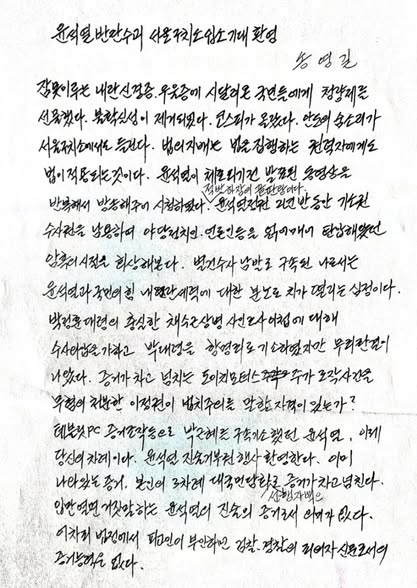 윤석열 반란수괴 서울구치소 입소기대 환영
송영길
잠못이루는 내란신경증, 우울증에 시달려온 국민들에게 청량제를
선물했다. 불확실성이 제거되었다. 코스피가 올랐다. 안도의 숨소리가
서울구치소에서도 들린다. 법의 지배는 법을 집행하는 권력자에게도
법이 적용되는것이다. 윤석열이 체포되기전 발표된 동영상을
적반하장의 끝판왕이다.
반복해서 방송해주어 시청하였다. 윤석열정권 2년 반동안 기소권
수사권을 남용하여 야당정치인, 언론인등을 탄압해왔던
암흑의 시절을 회상해본다. 별건수사 남발로 구속된 나로서는
윤석열과 국민의힘 내란세력에 대한 분노로 치가 떨리는 심정이다.
박정훈 대령의 충실한 채수근상병 사건조사 이첩에 대해
수사외압을 가하고 박대령을 항명죄로 기소하였지만 무죄판결이
나왔다. 증거가 차고 넘치는 도이치모터스 주가조작사건을
무혐의 처분한 이정권이 법치주의를 말할 자격이 있는가?
태블릿PC 증거조작등으로 박근혜를 구속기소했던 윤석열, 이제
당신의 차례이다. 윤석열 진술거부권 행사 환영한다. 이미
나와있는 증거, 본인의 3차례 대국민담화로 증거가 차고 넘친다.
선행자백은
입만열면 거짓말하는 윤석열의 진술의 증거로서 의미가 없다.
어차피 법정에서 피고인이 부인하면 검찰, 경찰의 피의자신문조서의
증거능력은 없다.